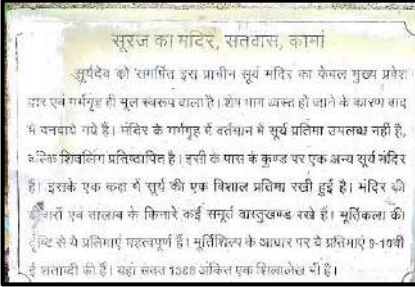 सूरज का मंदिर, सतवास, कामां
सूर्यदेव को समर्पित इस प्राचीन सूर्य मंदिर का केवल मुख्य प्रवेश
द्वार एवं गर्भगृह ही मूल स्वरूप वाला है। शेष भाग ध्वस्त हो जाने के कारण बाद
में बनवाये गये हैं। मंदिर के गर्भगृह में वर्तमान में सूर्य प्रतिमा उपलब्ध नहीं है,
बल्कि शिवलिंग प्रतिष्ठापित है। इसी के पास के कुण्ड पर एक अन्य सूर्य मंदिर
है। इसके एक कक्ष में सूर्य की एक विशाल प्रतिमा रखी हुई है। मंदिर की
दीवारों एवं तालाब के किनारे कई समूर्त वास्तुखण्ड रखे हैं। मूर्तिकला की
दृष्टि से ये प्रतिमाएं महत्वपूर्ण हैं। मूर्तिशिल्प के आधार पर ये प्रतिमाएं 9-10वीं
ई शताब्दी की हैं। यहां संवत अंकित एक शिलालेख भी है।